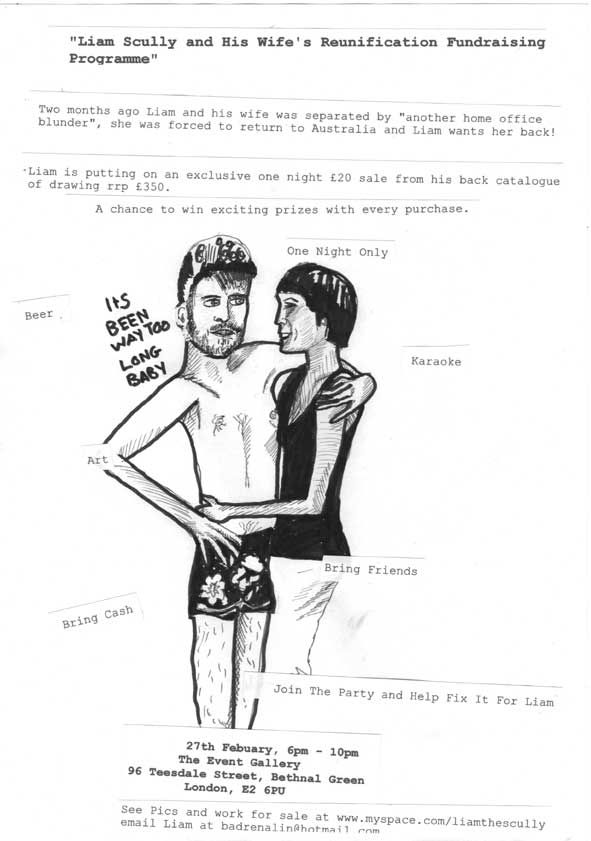 "Liam Scully and His Wife's Reunification Fundraising
Programme"
Two months ago Liam and his wife was separated by "another home office
blunder", she was forced to return to Australia and Liam wants her back!
Liam is putting on an exclusive one night £20 sale from his back catalogue
of drawing rrp £350.
A chance to win exciting prizes with every purchase.
One Night Only
Beer
ItS
BEEN
WAY TOO
LONG
BABY
Karaoke
Art
Bring Friends
Bring Cash
Join The Party and Help Fix It For Liam
27th Febuary, 6pm - 10pm
The Event Gallery
96 Teesdale Street, Bethnal Green
London, E2 6PU
See Pics and work for sale at www.myspace.com/liamthescully
email Liam at badrenalin@hotmail.com